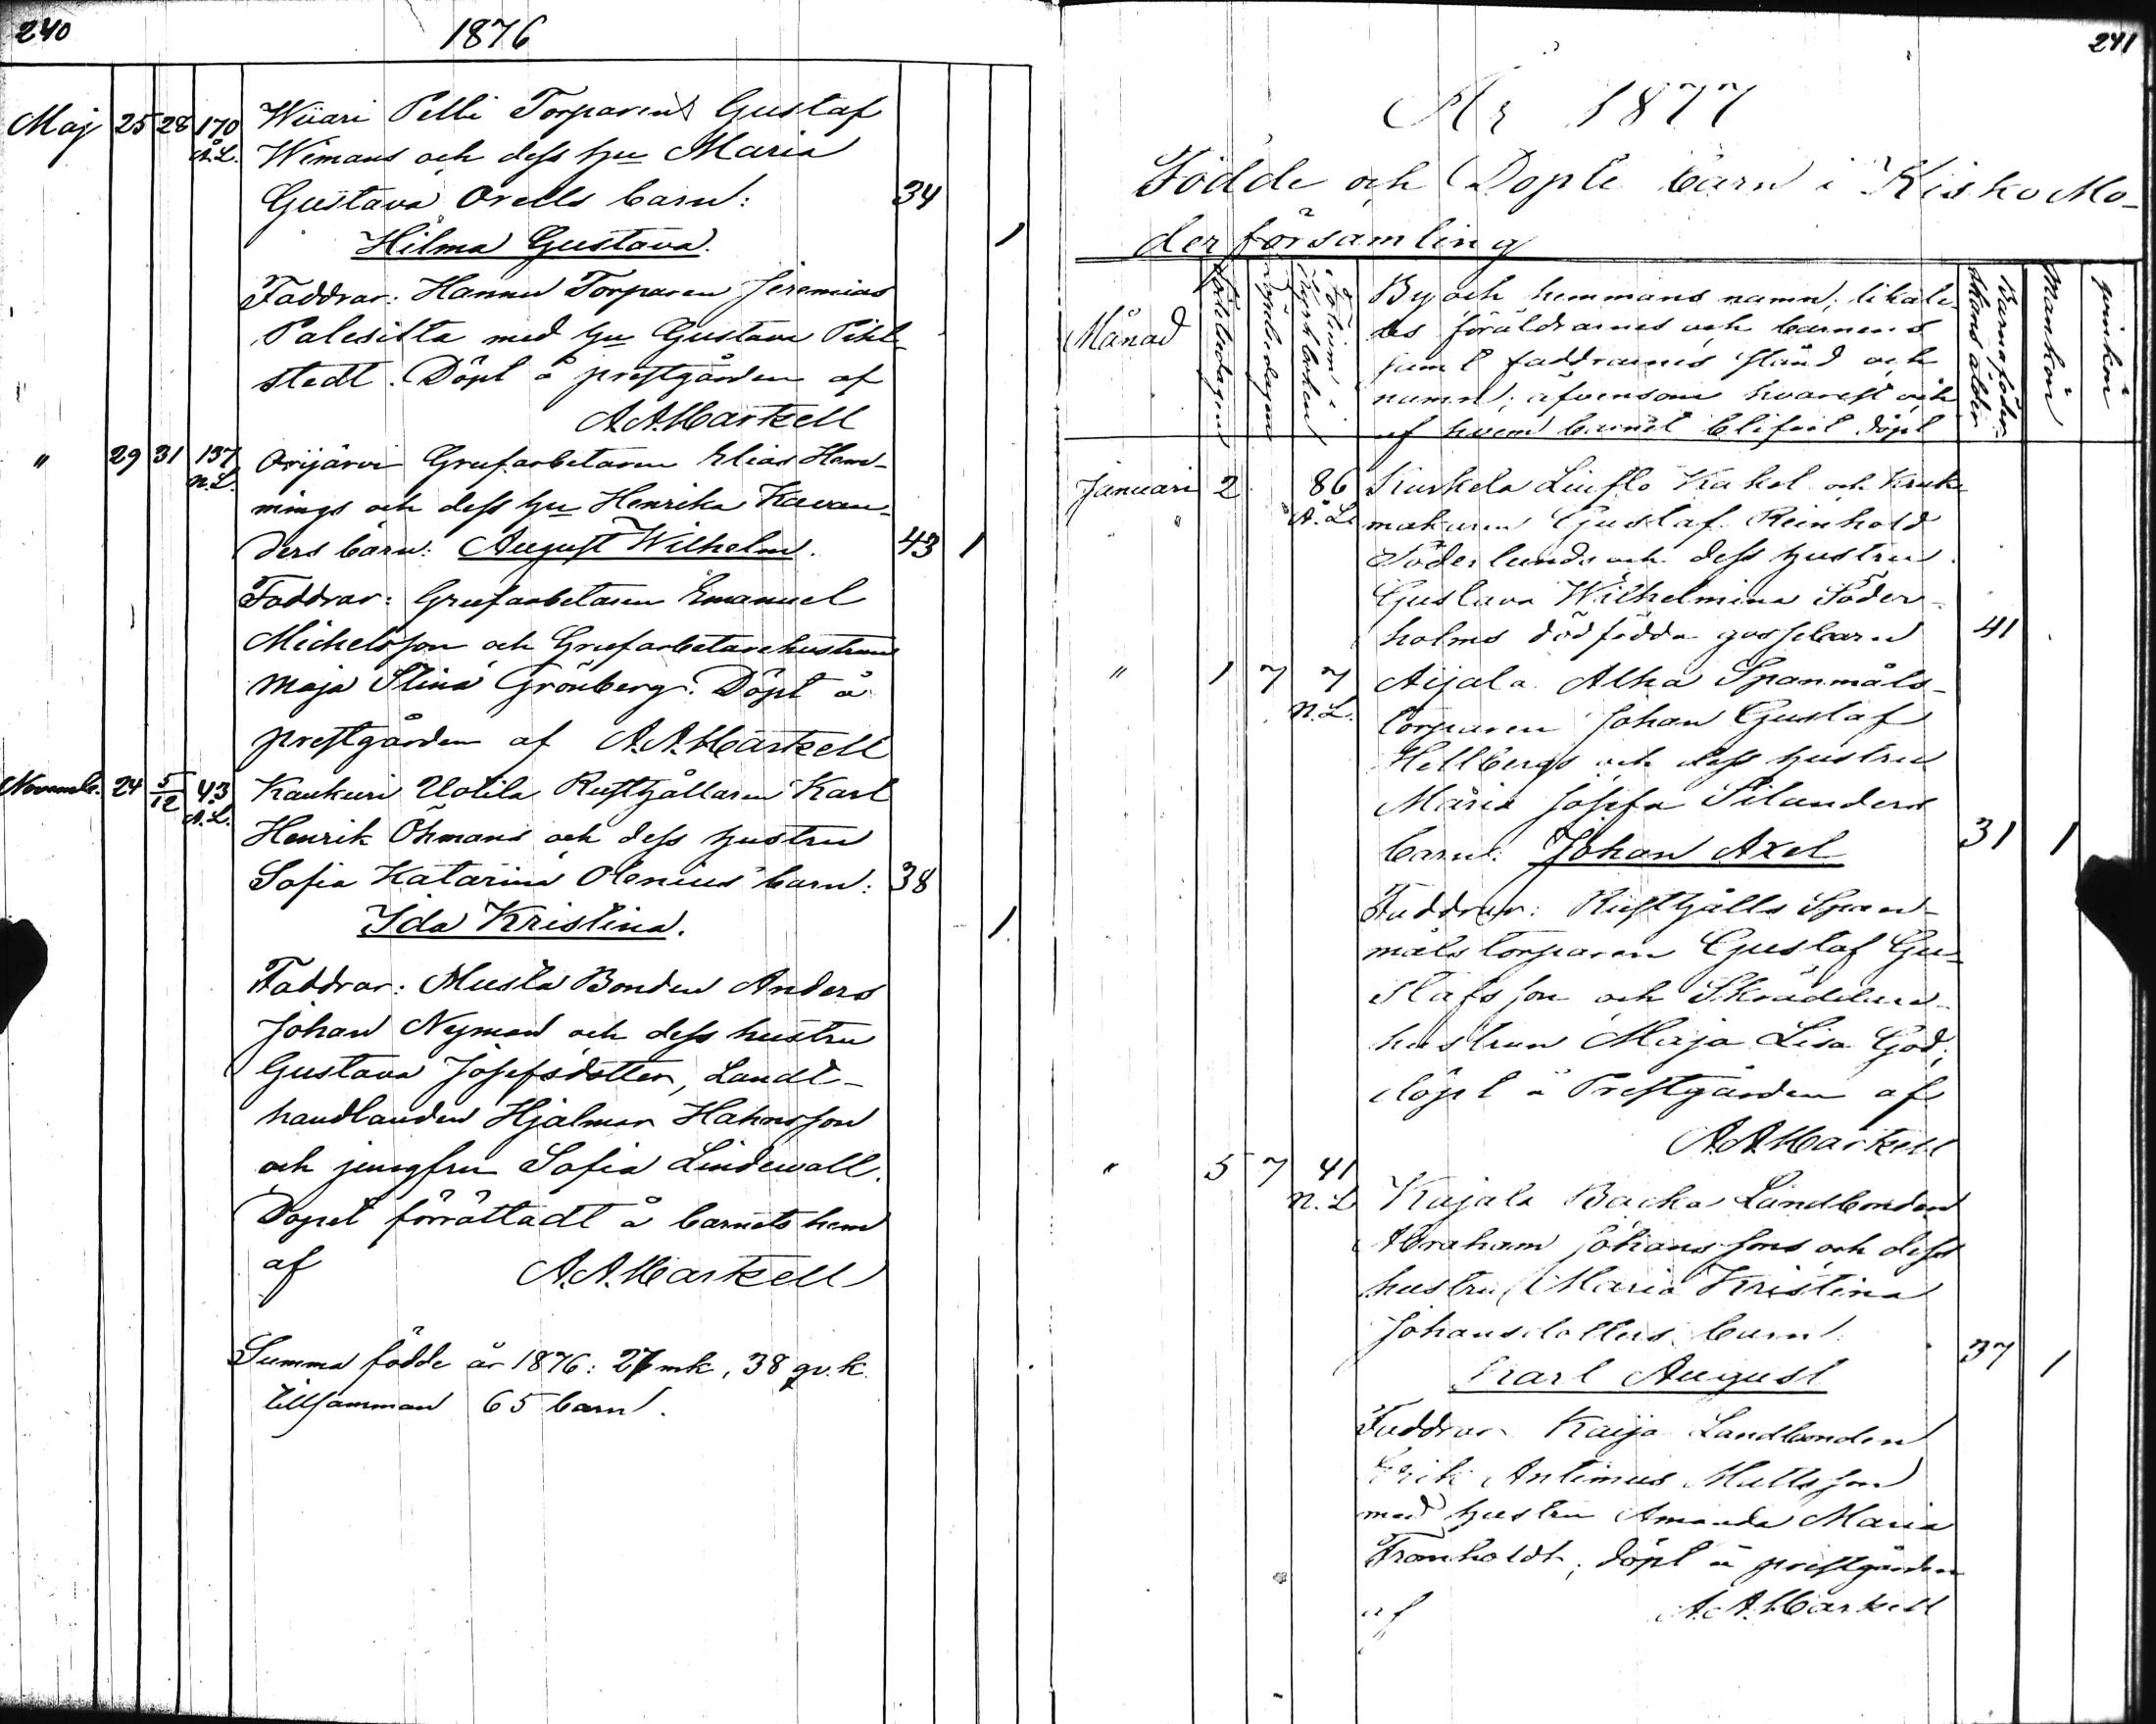 240
1876
Maj 25 28 170 Wiiari Pelli Torparens Gustaf
Å.L. Wimans och dess hu Maria
Gustava Orells barn: 34
Hilma Gustava. 1
Faddrar: Hannu Torparen Jeremias
Palesilta med hu Gustava Pihl-
stedt. Döpt å prestgården af
A.A. Markell
" 29 31 137 Orijärvi Grufarbetaren Elias Hen-
N.L. nings och dess hu Henrika Kavan-
ders barn: August Wilhelm. 43 1
Faddrar: Grufarbetaren Emanuel
Michelsson och Grufarbetarehustrun
Maja Stina Grönberg. Döpt å
prestgården af A.A. Markell
Novemb. 24 5/12 43 Kaukuri Uotila Rusthållaren Karl
Å.L. Henrik Öhmans och dess hustru
Sofia Katarina Olenius barn: 38
Ida Kristina. 1
Faddrar: Musta Bonden Anders
Johan Nyman och dess hustru
Gustava Josefsdotter, Landt-
handlanden Hjalmar Hahnsson
och jungfru Sofia Lindewall.
Dopet förrättadt å barnets hem
af A.A. Markell
Summa födde år 1876: 27 mk, 38 qv.k.
tillsamman 65 barn.
241
År 1877
Födde och Döpte barn i Kisko Mo-
derförsamling
Månad
Födelsedagen
Döpelsedagen
Folium i Kyrkboken
By och hemmans namn, likale-
des föräldrarnes och barnens
samt faddrarnes stånd och
namn; äfvensom hvarest och
af hvem barnet blifvit döpt
Barnaföder-
skans ålder
mankön
qvinkön
Januari 2 86 Kurkela Liuflo Kakel och Kruk-
" Å.L. makaren Gustaf Reinhold
Söderlunds och dess hustru
Gustava Wilhelmina Söder-
holms dödfödda gossebarn 41
" 1 7 7 Aijala Alha Spanmåls-
N.L. torparen Johan Gustaf
Hellbergs och dess hustru
Maria Josefa Silanders
barn: Johan Axel 31 1
Faddrar: Rusthålls Span-
måls torparen Gustaf Gu-
stafsson och Skräddare-
hustrun Maja Lisa God;
döpt å Prestgården af
A.A. Markell
" 5 7 41
N.L. Kajala Backa Landbonden
Abraham Johanssons och dess
hustru Maria Kristina
Johansdotters barn:
Karl August 37 1
Faddrar Kaija Landbonden
Erik Antimus Mattsson
med hustru Amanda Maria
Framholdt; döpt å prestgården
af A.A. Markell